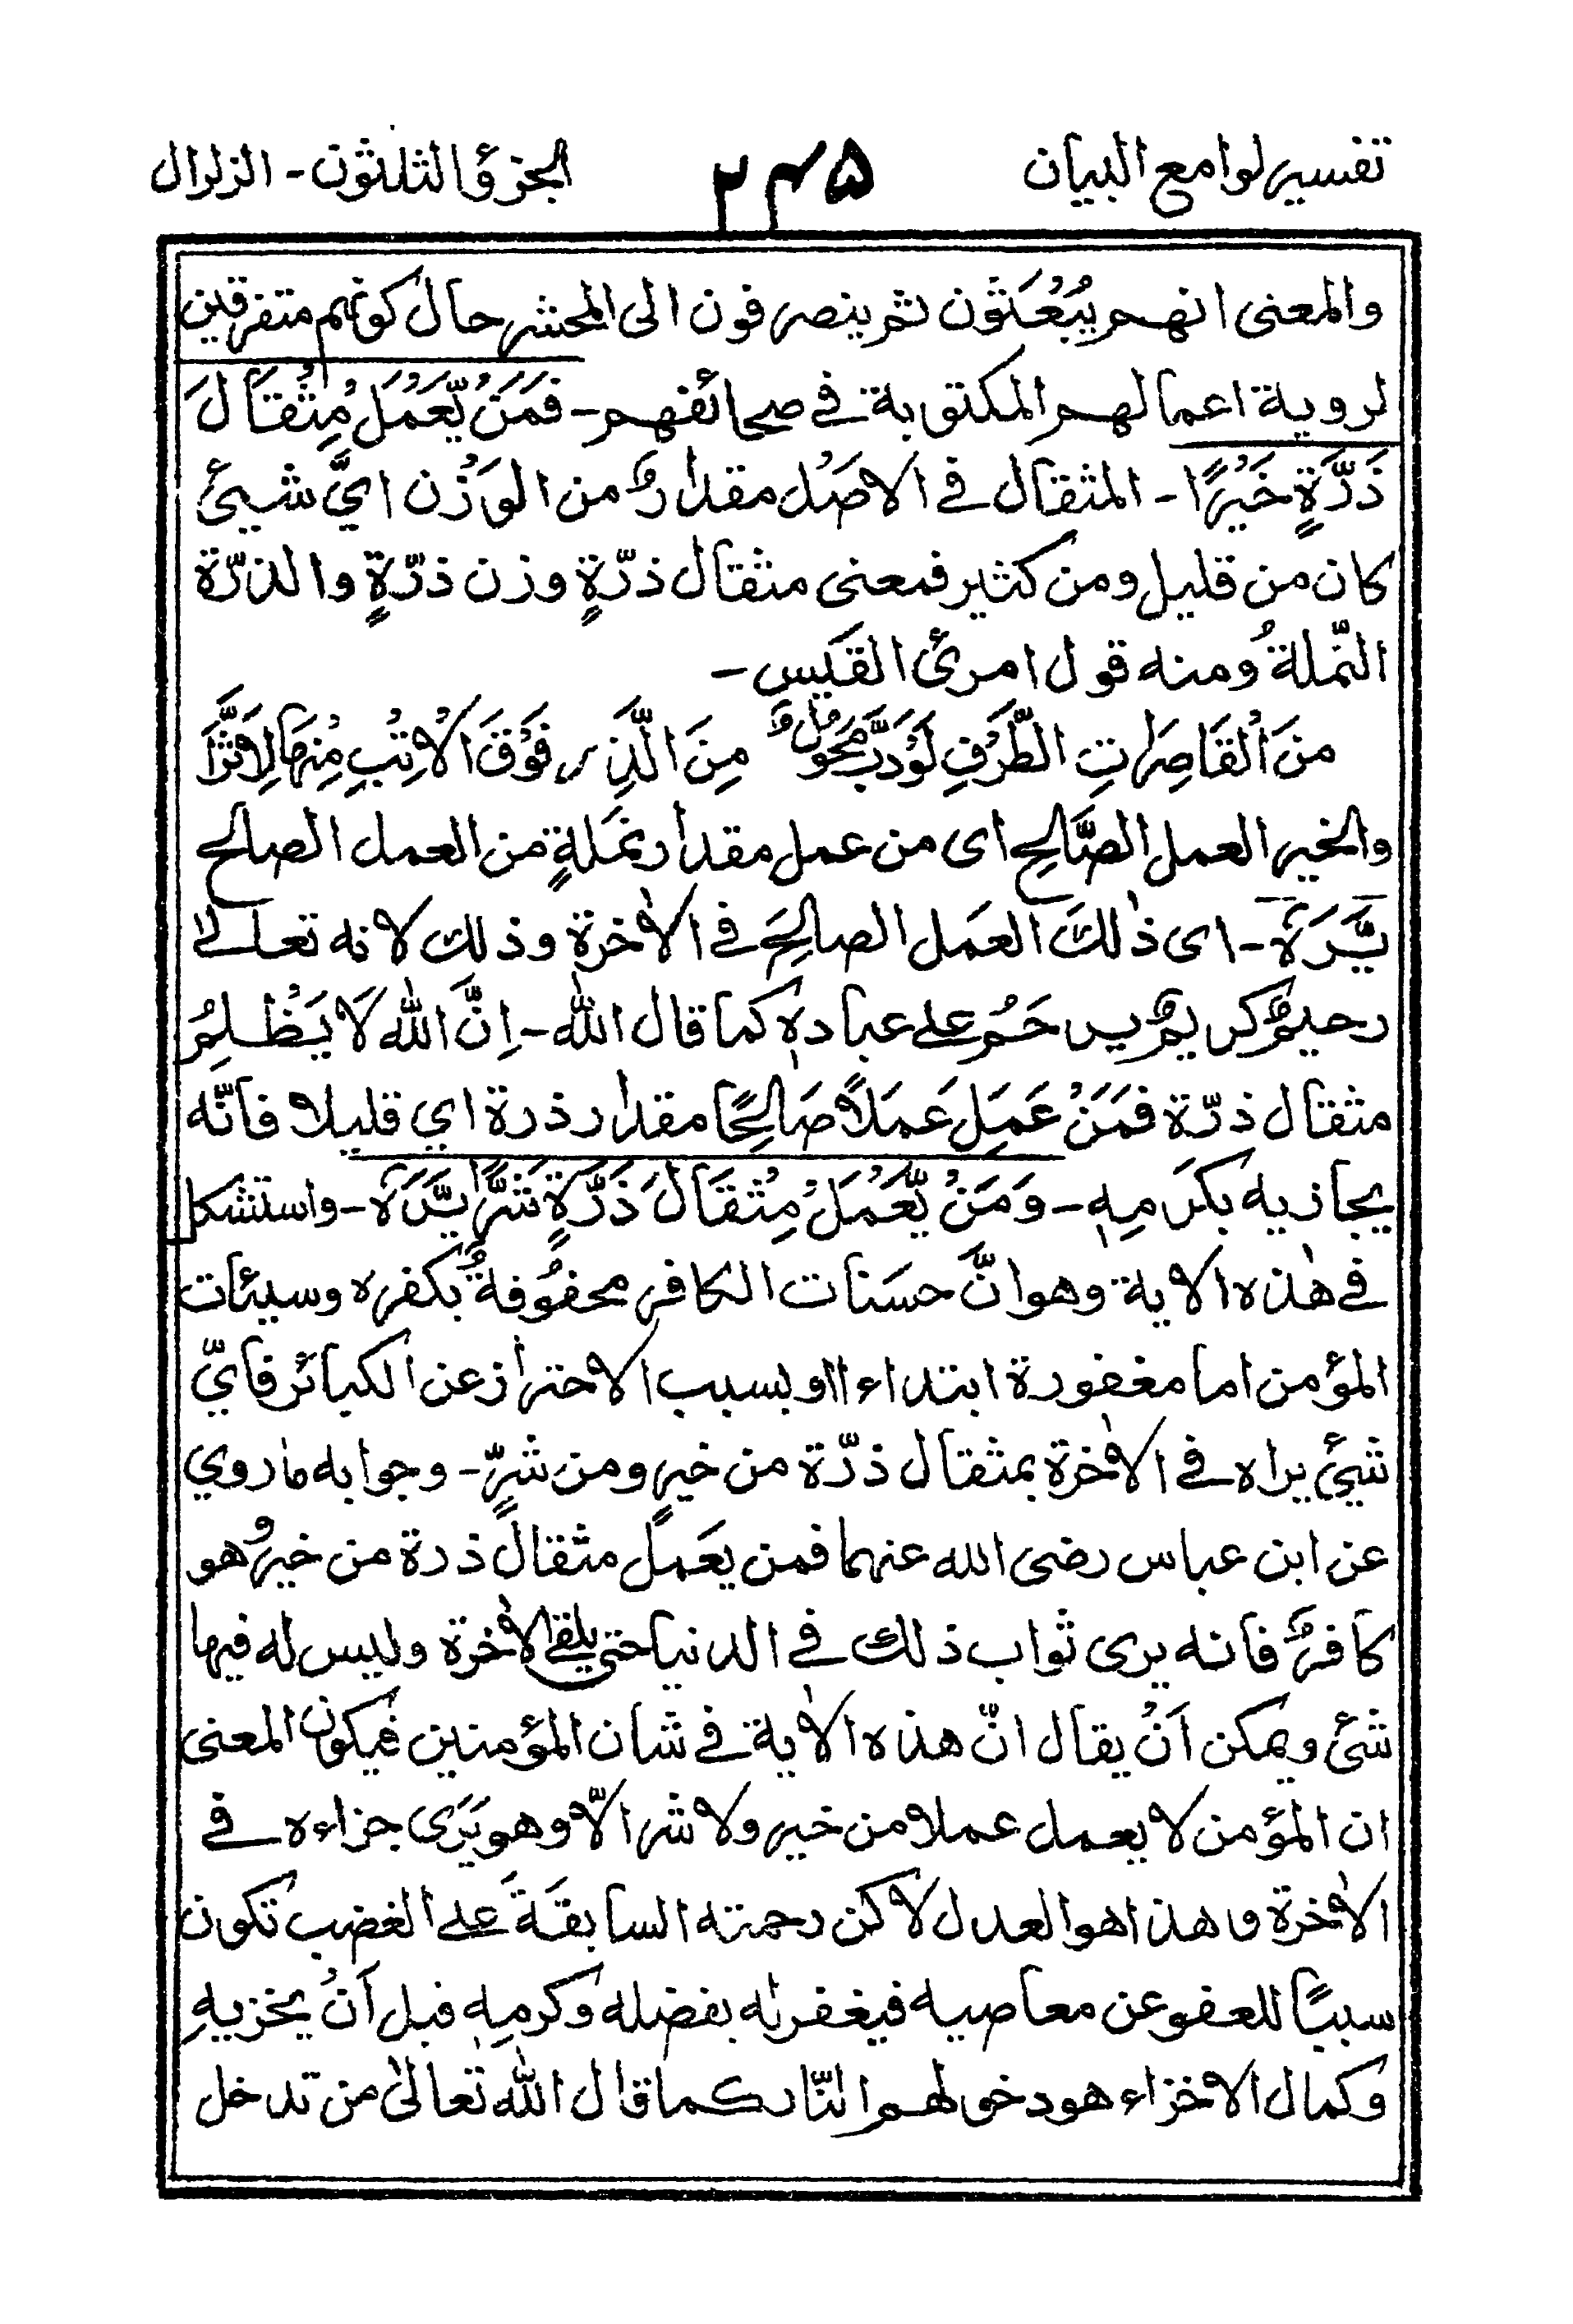 تفسير لوامع البيان ٢٤٥ الجزؤ الثلثون - الزلزال
والمعنى انهم يُبْعَثُون ثم ينصرفون الى المحشر حال كونهم متفرقين
لروية اعمالهم المكتوبة في صحائفهم - فَمَنْ يَّعْمَلْ مِثْقَالَ
ذَرَّةٍ خَيْرًا - المثقال في الاصَل مقدارٌ من الوَزْن ايَّ شيئ
كان من قليل ومن كثير فمعنى مثقال ذرّةٍ وزن ذرّةٍ والذرّة
النّملةُ ومنه قول امرئ القَيس -
منَ الْقَاصِرَاتِ الطَّرْفِ لَوْدَبَّ مَحْوِلٌ مِنَ الَّذِر فَوْقَ الْاِتْبِ مِنْهَا لَاَثَّرَا
والخير العمل الصَّالِح اى من عمل مقدار نَملةٍ من العمل الصالح
يَّرَهٗ - اى ذٰلكَ العَمل الصالحَ في الاٰخرة وذلك لانه تعالىٰ
رحيمٌ كريمٌ يرحَمُ على عبادهٖ كما قال الله - اِنَّ الله لَا يَظْلِمُ
مثقال ذرّة فَمَنْ عَمِلَ عَمَلاً صَالِحًا مقدار ذرة اي قليلا فانّه
يجازيه بكرَمِهٖ - وَمَنْ يَّعْمَلْ مِثْقَالَ ذَرَّةٍ شَرًّا يَّرَهٗ - واستشكل
في هٰذه الاية وهو انَّ حسَنات الكافر محفُوفةٌ بكفره وسيئات
المؤمن اما مغفورة ابتداءا او بسبب الاحتراز عن الكبائر فايّ
شيئ يراه في الاٰخرة بمثقال ذرّة من خيرٍ ومن شرٍّ - وجوابه ما روي
عن ابن عباس رضى الله عنهما فمن يعَمل مثقالَ ذرة من خير وهو
كافرٌ فانه يرى ثواب ذلك في الدنيا حتى يلقى الاٰخرة وليس له فيها
شئ ويمكن اَنْ يقال انّ هذه الاٰية في شان المؤمنين فيكون المعنى
ان المؤمن لا يعمل عملا من خير ولا شر الّا وهو يَرَى جزاءه في
الاٰخرة وهذا هو العدل لاكن رحمته السابقَةَ على الغضب تكون
سببًا للعفو عن معاصيه فيغفر له بفضله وكرمِهٖ قبل اَنْ يخزيهِ
وكمال الاخزاء هو دخولهم النّار كما قال الله تعالىٰ من تدخل